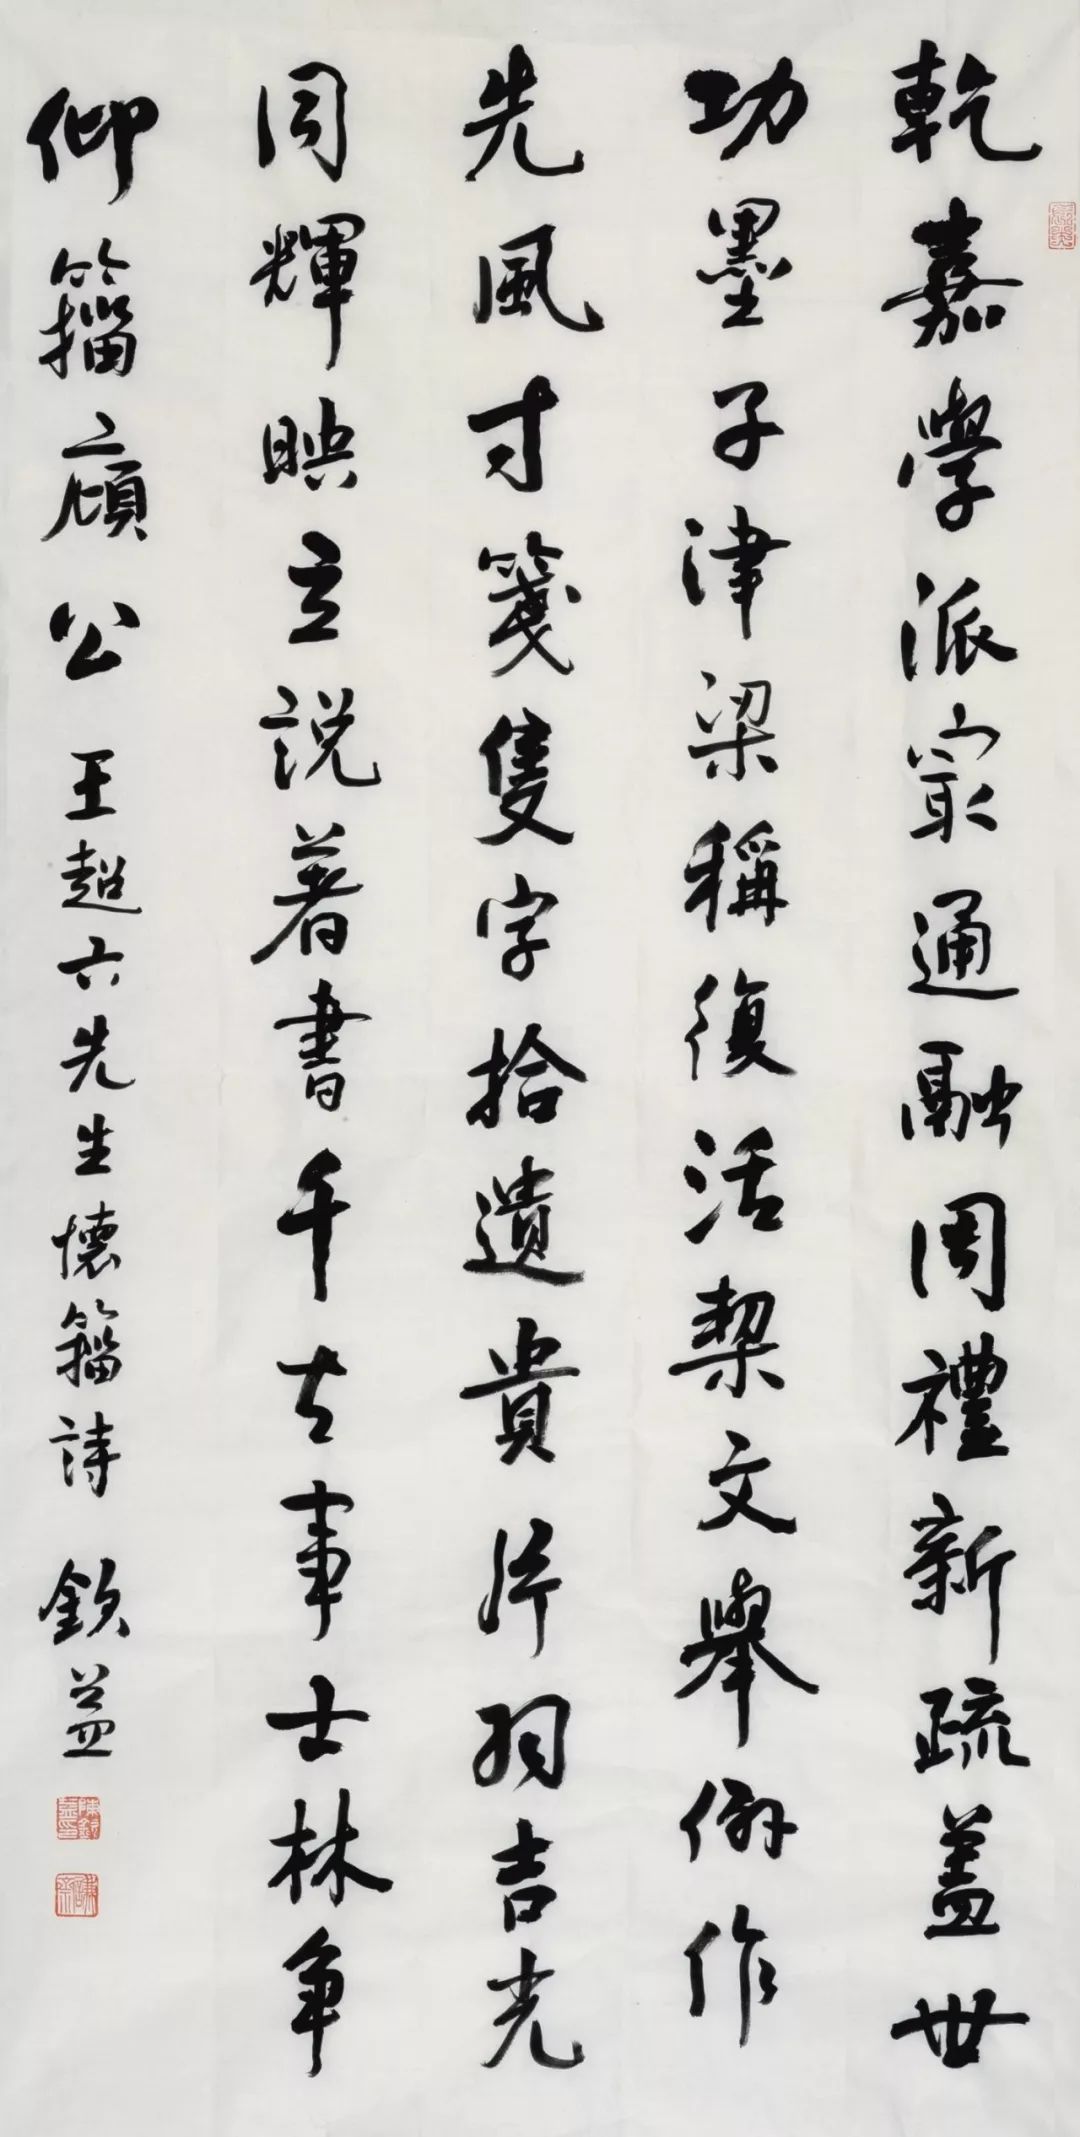 乾嘉學派冣通融周禮新疏蓋世
功墨子津梁稱復活契文舉例作
先風寸箋隻字拾遺貴片羽吉光
同輝映立說著書千古事士林爭
仰籀廎公 王超六先生懷籀詩 欽益
陳欽益印